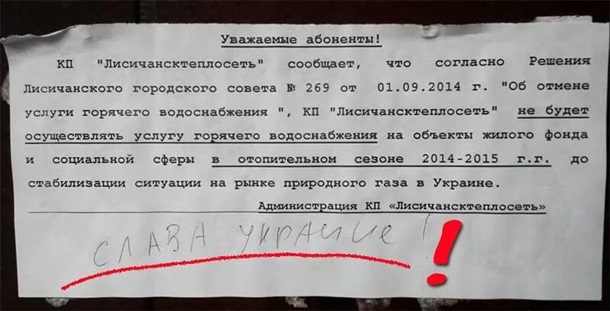 Уважаемые абоненты!
КП "Лисичансктеплосеть" сообщает, что согласно Решения
Лисичанского городского совета № 269 от 01.09.2014 г. "Об отмене
услуги горячего водоснабжения ", КП "Лисичансктеплосеть" не будет
осуществлять услугу горячего водоснабжения на объекты жилого фонда
и социальной сферы в отопительном сезоне 2014-2015 г.г. до
стабилизации ситуации на рынке природного газа в Украине.
Администрация КП «Лисичансктеплосеть»
СЛАВА УКРАИНЕ!